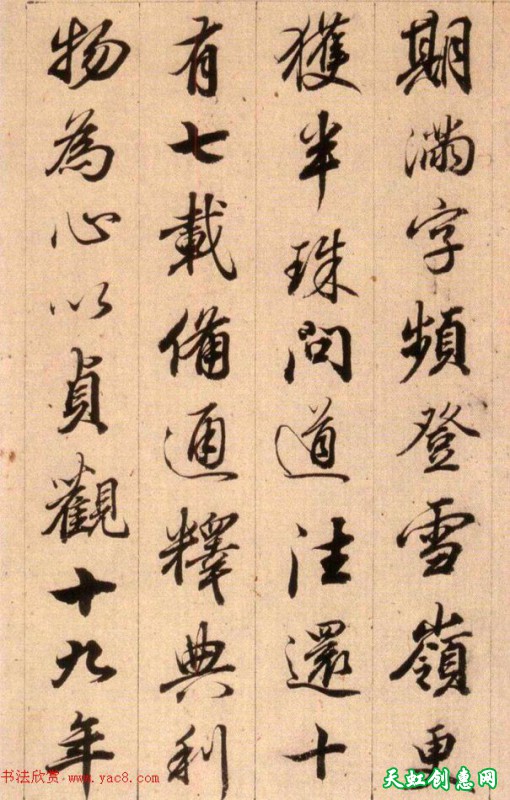 期滿字頻登雪嶺更
獲半珠問道往還十
有七載備通釋典利
物為心以貞觀十九年
书法欣赏 www.yac8.com
天虹创惠网